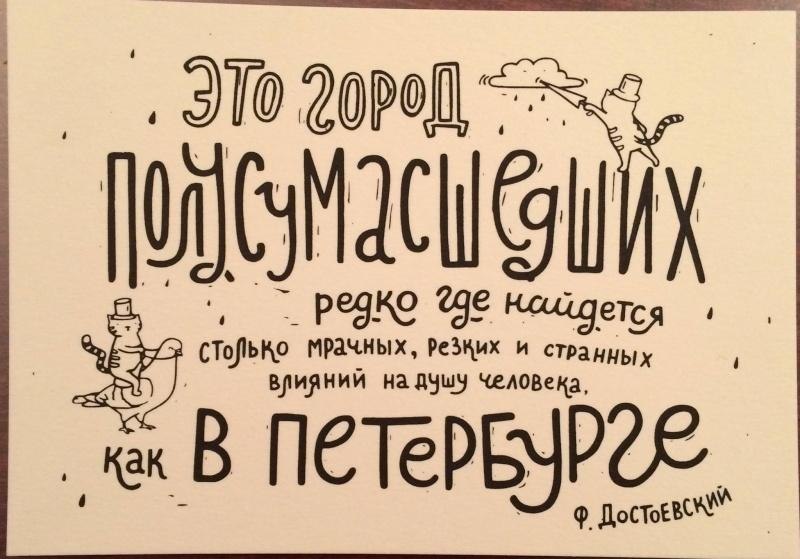 Это город
полусумасшедших
редко где найдется
столько мрачных, резких и странных
влияний на душу человека,
как в Петербурге
Ф. Достоевский